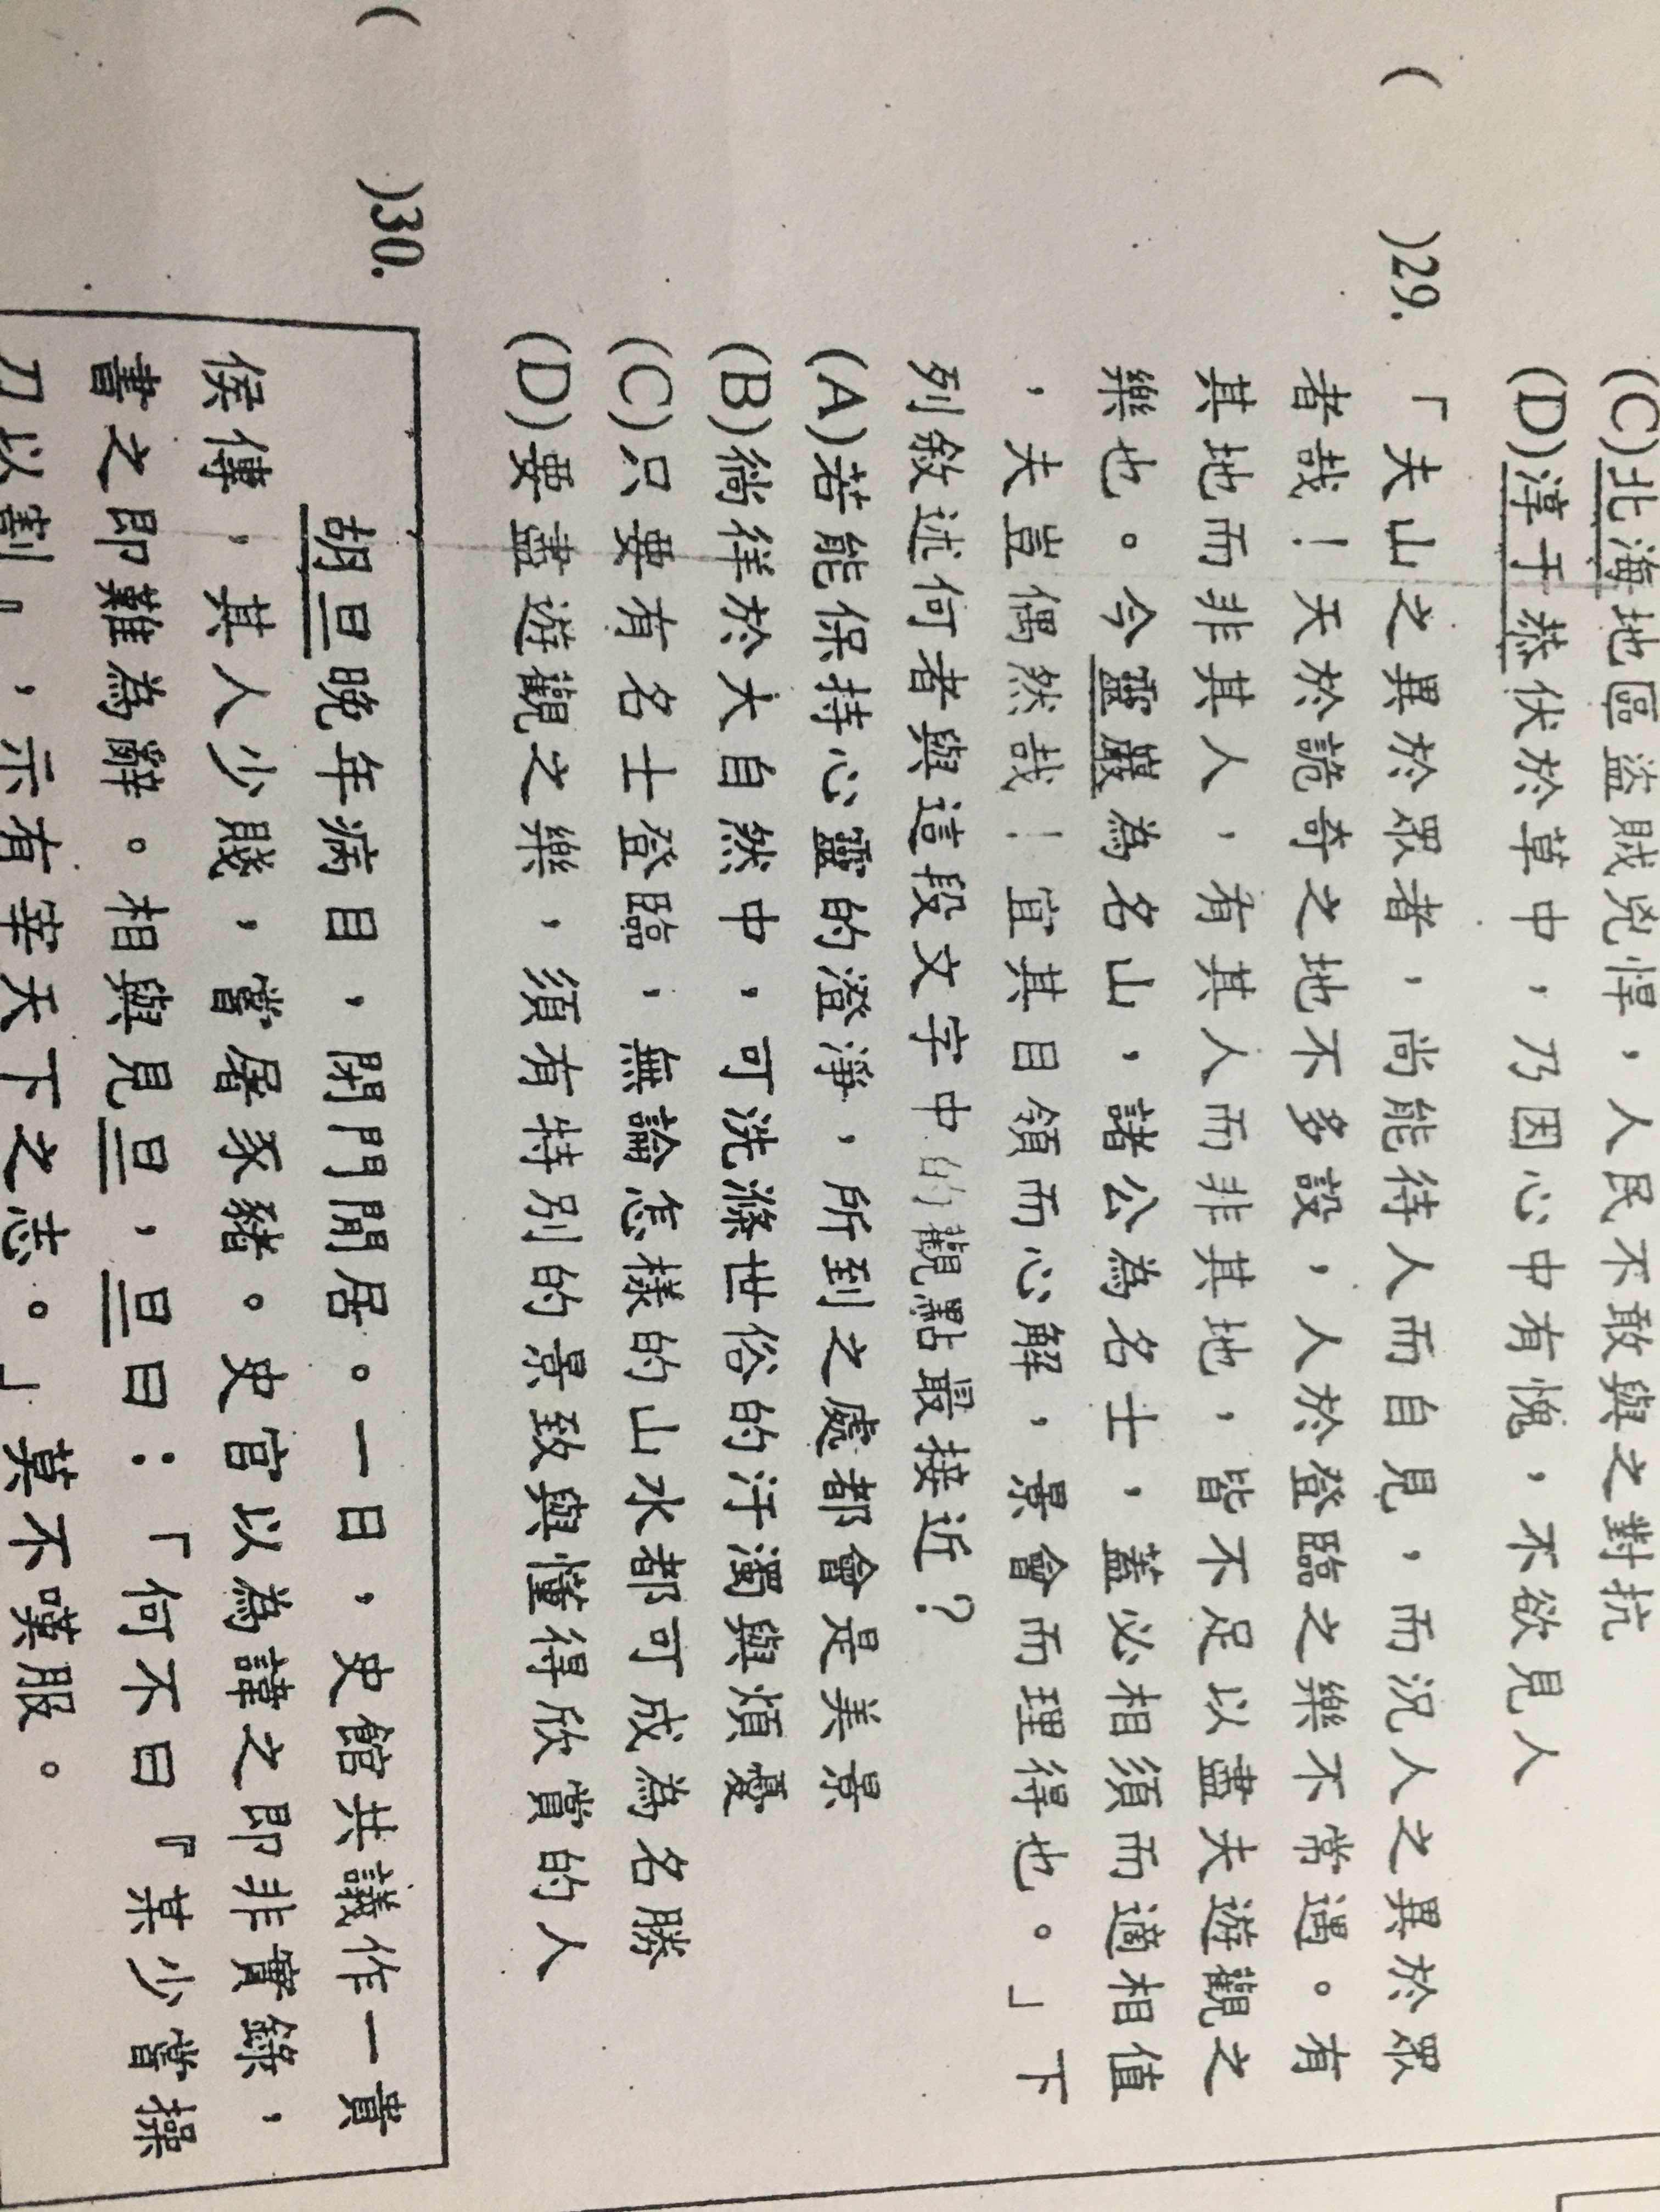 (C)北海地區盜賊兇悍，人民不敢與之對抗
(D)淳于恭伏於草中，乃因心中有愧，不欲見人
(　)29.「夫山之異於眾者，尚能待人而自見，而況人之異於眾
者哉！天於詭奇之地不多設，人於登臨之樂不常遇。有
其地而非其人，有其人而非其地，皆不足以盡夫遊觀之
樂也。今靈巖為名山，諸公為名士，蓋必相須而適相值
，夫豈偶然哉！宜其目領而心解，景會而理得也。」下
列敘述何者與這段文字中的觀點最接近？
(A)若能保持心靈的澄淨，所到之處都會是美景
(B)徜徉於大自然中，可洗滌世俗的汙濁與煩憂
(C)只要有名士登臨，無論怎樣的山水都可成為名勝
(D)要盡遊觀之樂，須有特別的景致與懂得欣賞的人
(　)30.
胡旦晚年病目，閉門閒居。一日，史館共議作一貴
侯傳，其人少賤，嘗屠豕豬。史官以為諱之即非實錄，
書之即難為辭。相與見旦，旦曰：「何不曰『某少嘗操
刀以割』，示有宰天下之志。」莫不嘆服。